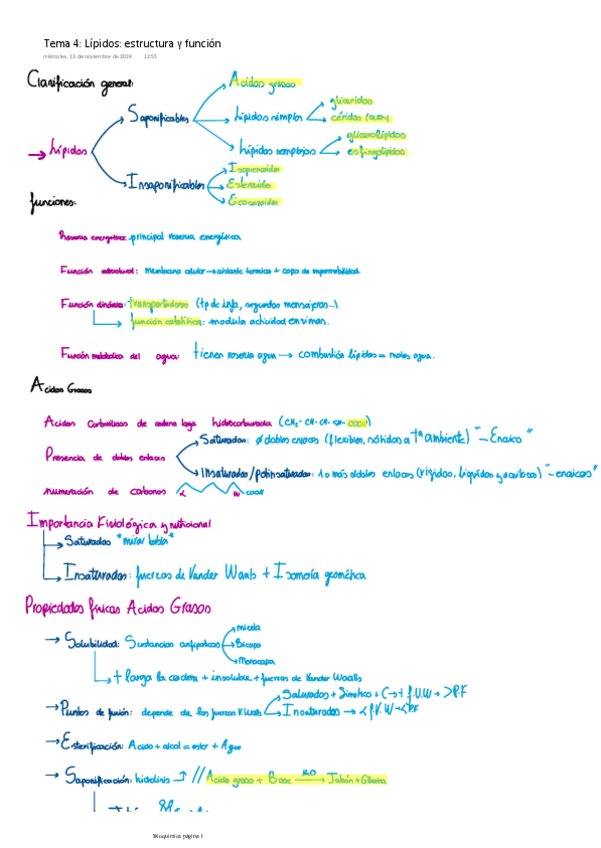 Tema 4: Lípidos: estructura y función
miércoles, 13 de noviembre de 2024 12:55
Clasificación general:
Ácidos grasos
Saponificables
lípidos simples
glicéridos
céridos (ceras)
→ lípidos
lípidos complejos
glicerolípidos
esfingolípidos
Insaponificables
Isoprenoides
Esteroides
Eicosanoides
funciones:
Reserva energética: principal reserva energética
Función estructural: membrana celular → aislante térmico + capa de impermeabilidad.
Función dinámica: transportadores (tp de info, segundos mensajeros...)
función catalítica: modula actividad enzimas.
Función metabólica del agua: tienen reserva agua → combustión lípidos = moles agua.
Ácidos Grasos
Ácidos Carboxílicos de cadena larga hidrocarburada (CH3- CH- CH- CH- COOH)
Presencia de dobles enlaces
Saturados: ∅ dobles enlaces (flexibles, sólidos a Tª ambiente) "-Enoico"
Insaturados/poliinsaturados: 1 o más dobles enlaces (rígidos, líquidos y aceitosos) "-enoicos"
numeración de carbonos α ω COOH
Importancia Fisiológica y nutricional
→ Saturados "mirar tabla"
→ Insaturados: fuerzas de Vander Waals + Isomería geométrica
Propiedades físicas Ácidos Grasos
→ Solubilidad: Sustancias anfipáticas
micela
Bicapa
Monocapa
→ + larga la cadena + insoluble + fuerzas de Vander Waalls
→ Puntos de fusión: depende de las fuerzas V.Waals
Saturados + Simétrico + C → + f.V.W → >P.F
Insaturados → < f.V.W → <P.F
→ Esterificación: Ácido + alcohol = ester + Agua
→ Saponificación: hidrólisis // Ácido graso + Base H2O → Jabón + Glicerina
Bioquímica página 1